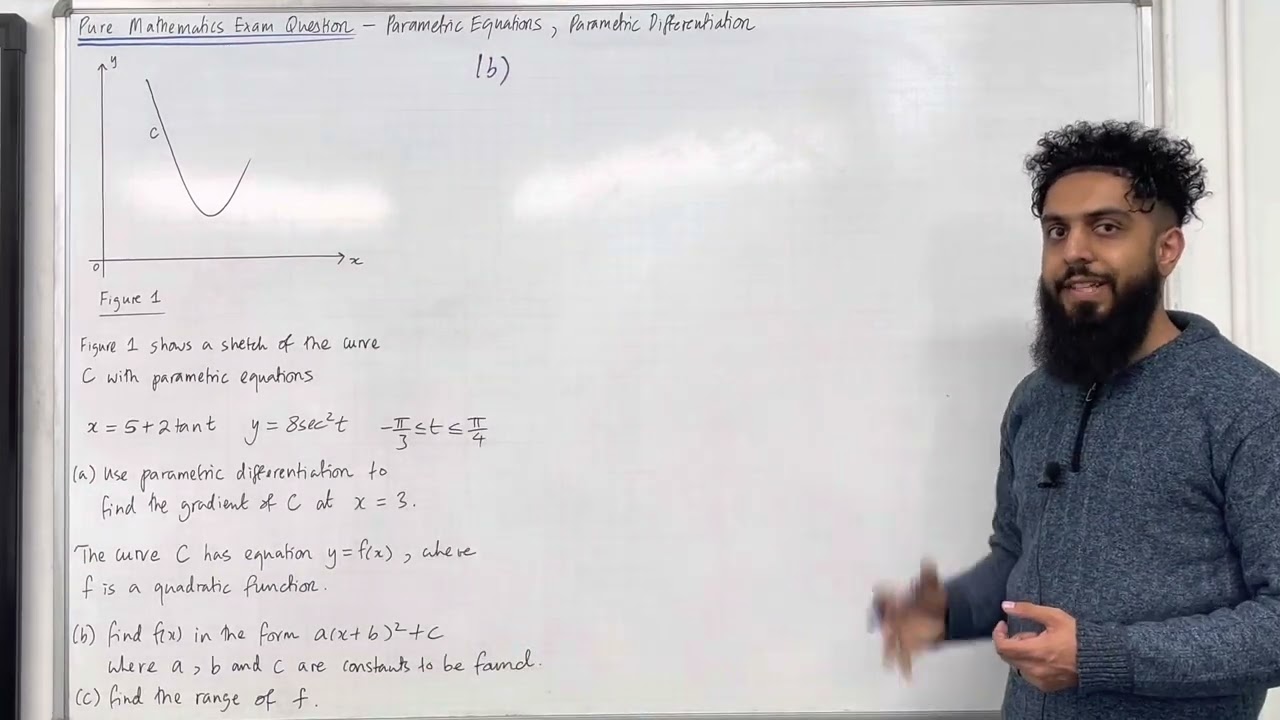 Pure Mathematics Exam Question – Parametric Equations, Parametric Differentiation
(b)
y
C
0
x
Figure 1
Figure 1 shows a sketch of the curve
C with parametric equations
x = 5 + 2 tan t   y = 8 sec² t   -π/3 ≤ t ≤ π/4
(a) Use parametric differentiation to
find the gradient of C at x = 3.
The curve C has equation y = f(x), where
f is a quadratic function.
(b) find f(x) in the form a(x + b)² + c
where a, b and c are constants to be found.
(c) find the range of f.